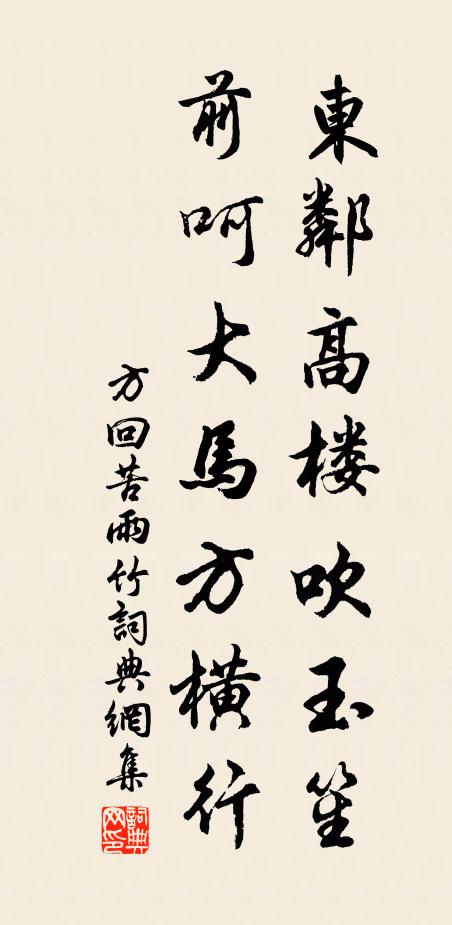 東鄰高楼吹玉笙
前呵大馬方横行
方回苦雨竹詞典網集
詞典網印